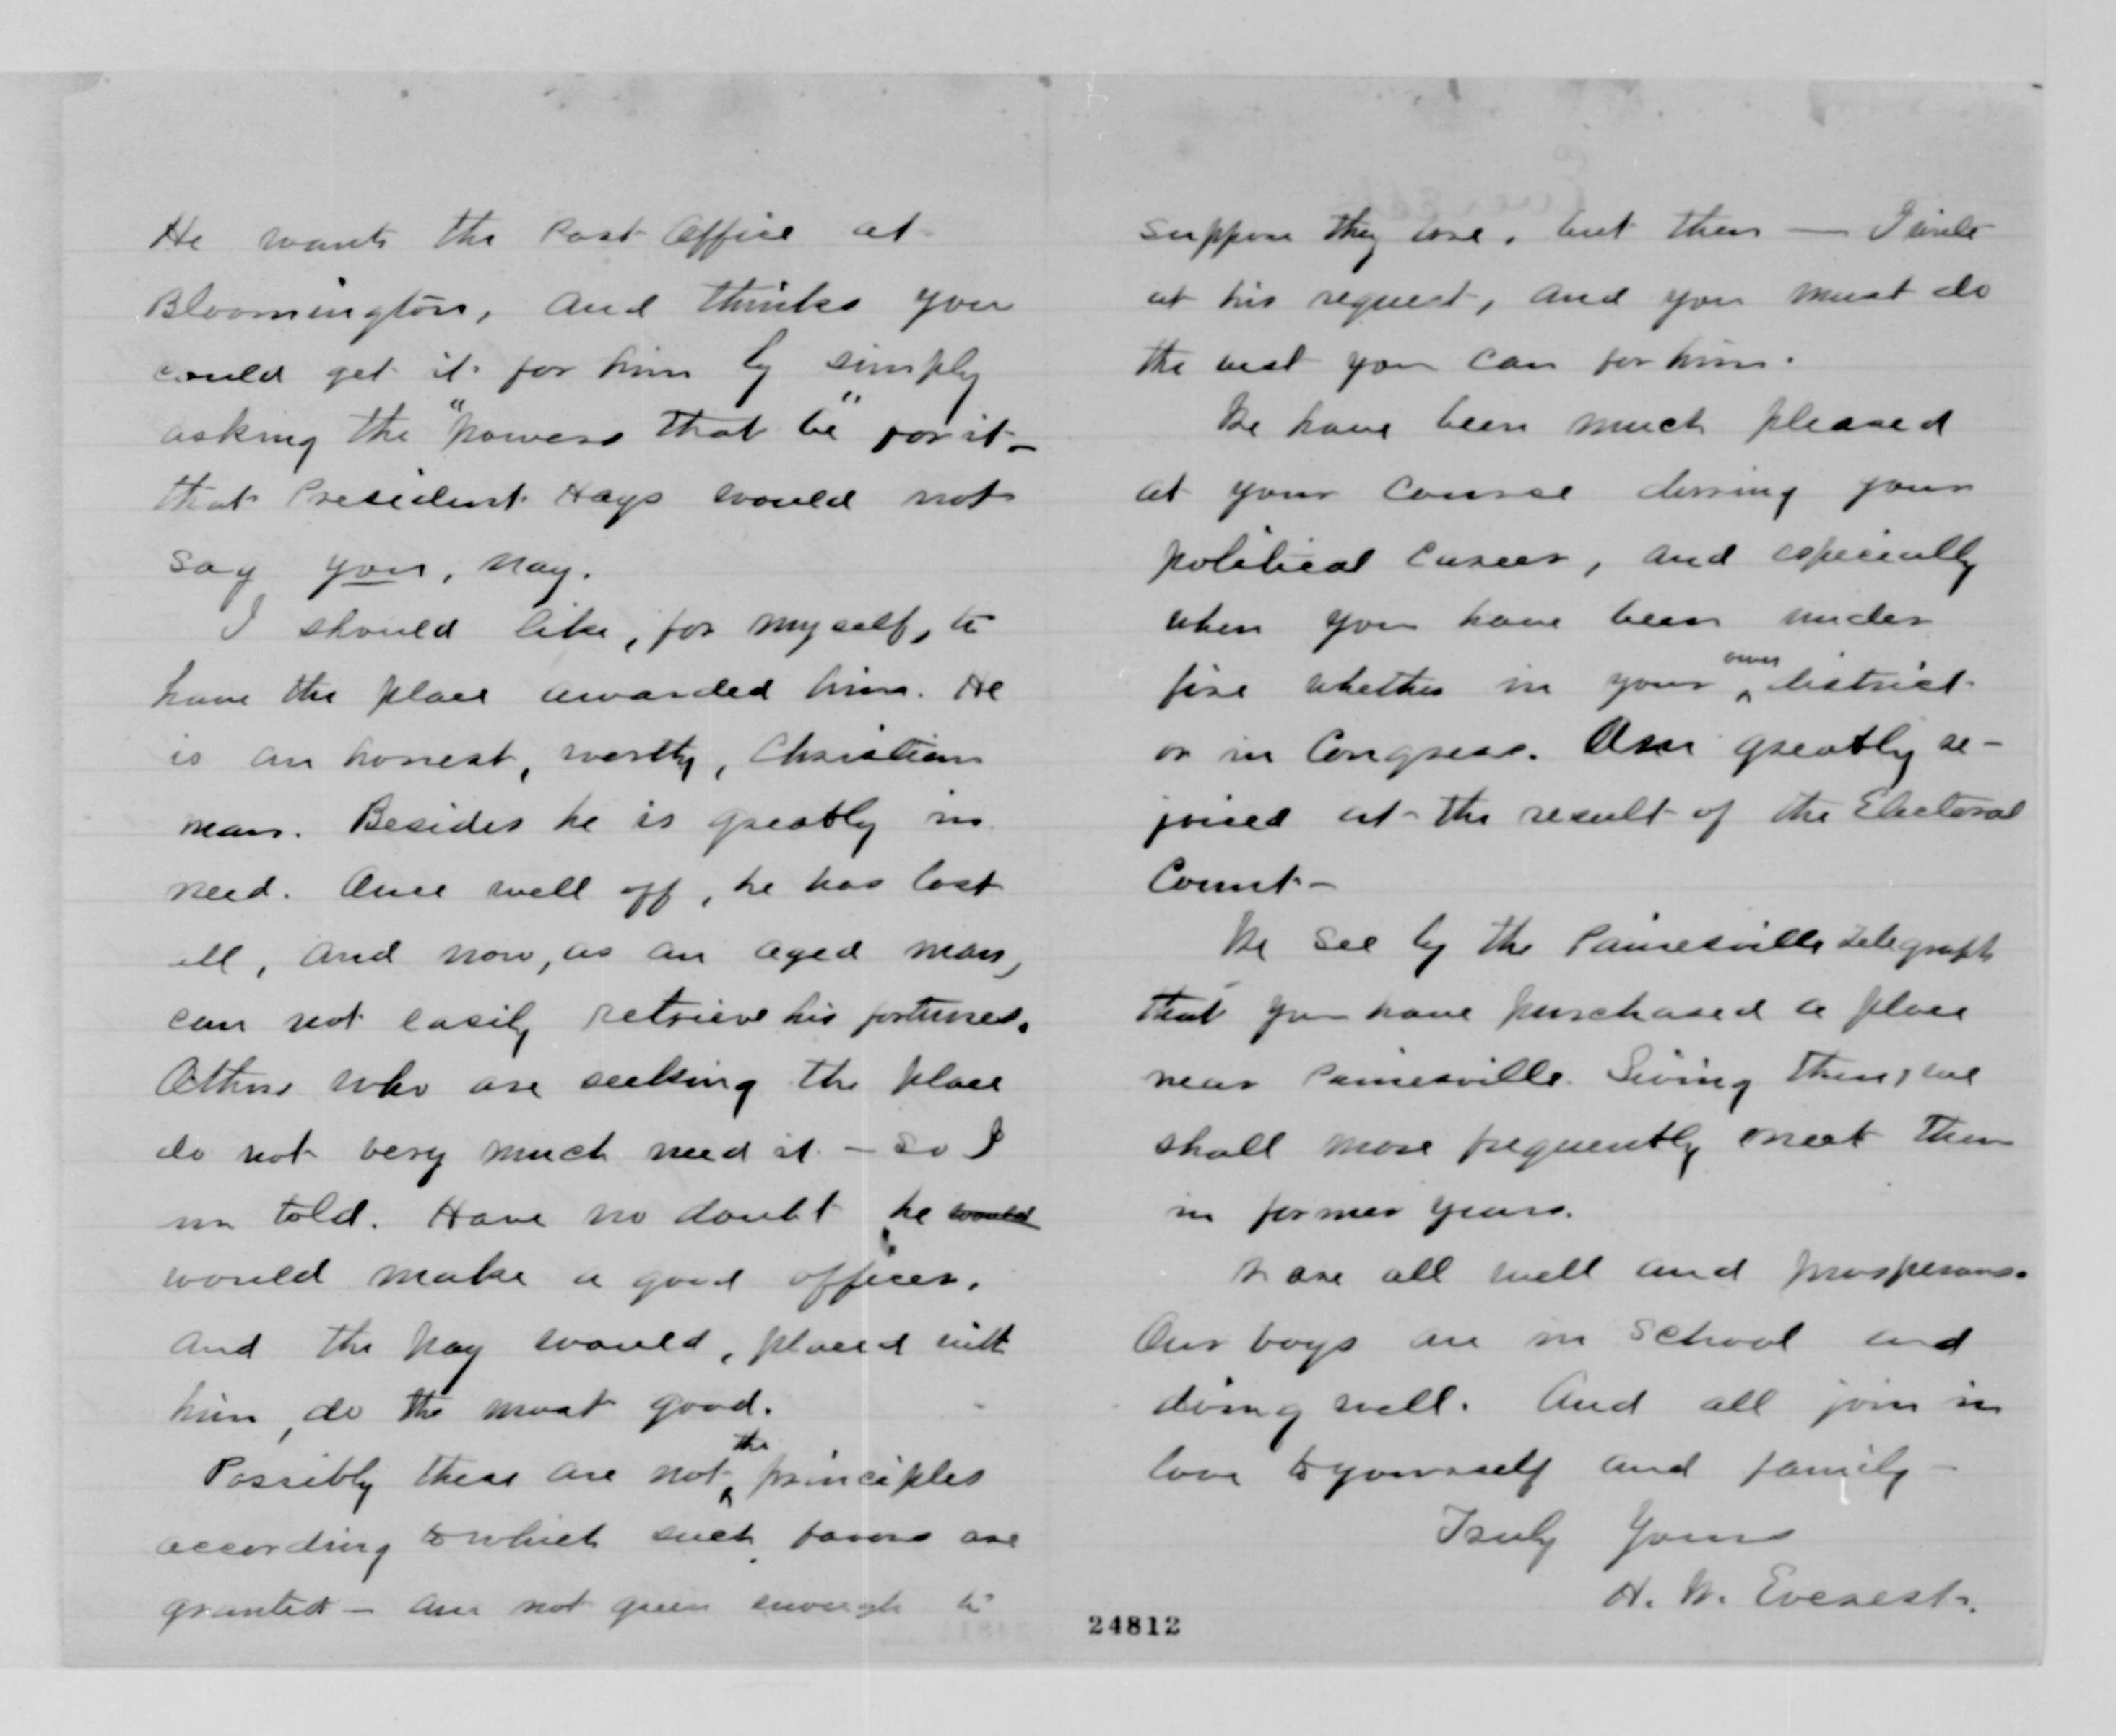 He wants the Post Office at
Bloomington, and thinks you
could get it for him by simply
asking the "powers that be" for it –
that President Hays would not
say you, nay.
I should like, for myself, to
have the place awarded him. He
is an honest, worthy, Christian
man. Besides he is greatly in
need. Once well off, he has lost
all, and now, as an aged man,
can not easily retrieve his fortunes.
Others who are seeking the place
do not very much need it – so I
am told. Have no doubt he would
would make a good officer.
And the pay would, placed with
him, do the most good.
Possibly these are not the principles
according to which such favors are
granted – am not green enough to
suppose they are, but then — I write
at his request, and you must do
the best you can for him.
We have been much pleased
at your course during your
political career, and especially
when you have been under
fire whether in your own district
or in Congress. Am greatly re-
joiced at the result of the Electoral
Count –
We see by the Painesville Telegraph
that you have purchased a place
near Painesville. Living there, we
shall more frequently meet than
in former years.
We are all well and prosperous.
Our boys are in School and
doing well. And all join in
love to yourself and family –
Truly Yours
H. W. Everest.
24812